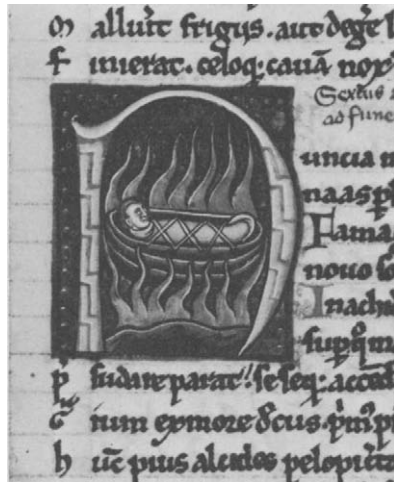 M alluit frigiis. aut degē l
f inierat. celoq; cauā nox
Sextus
ad fune
N uncia m
naas p
Fama
nouo
Inach
supq; m
p sudare parat! seseq; accēd
G ium ex more dcus. pm9 pi
h uc pius alcides pelopi ct